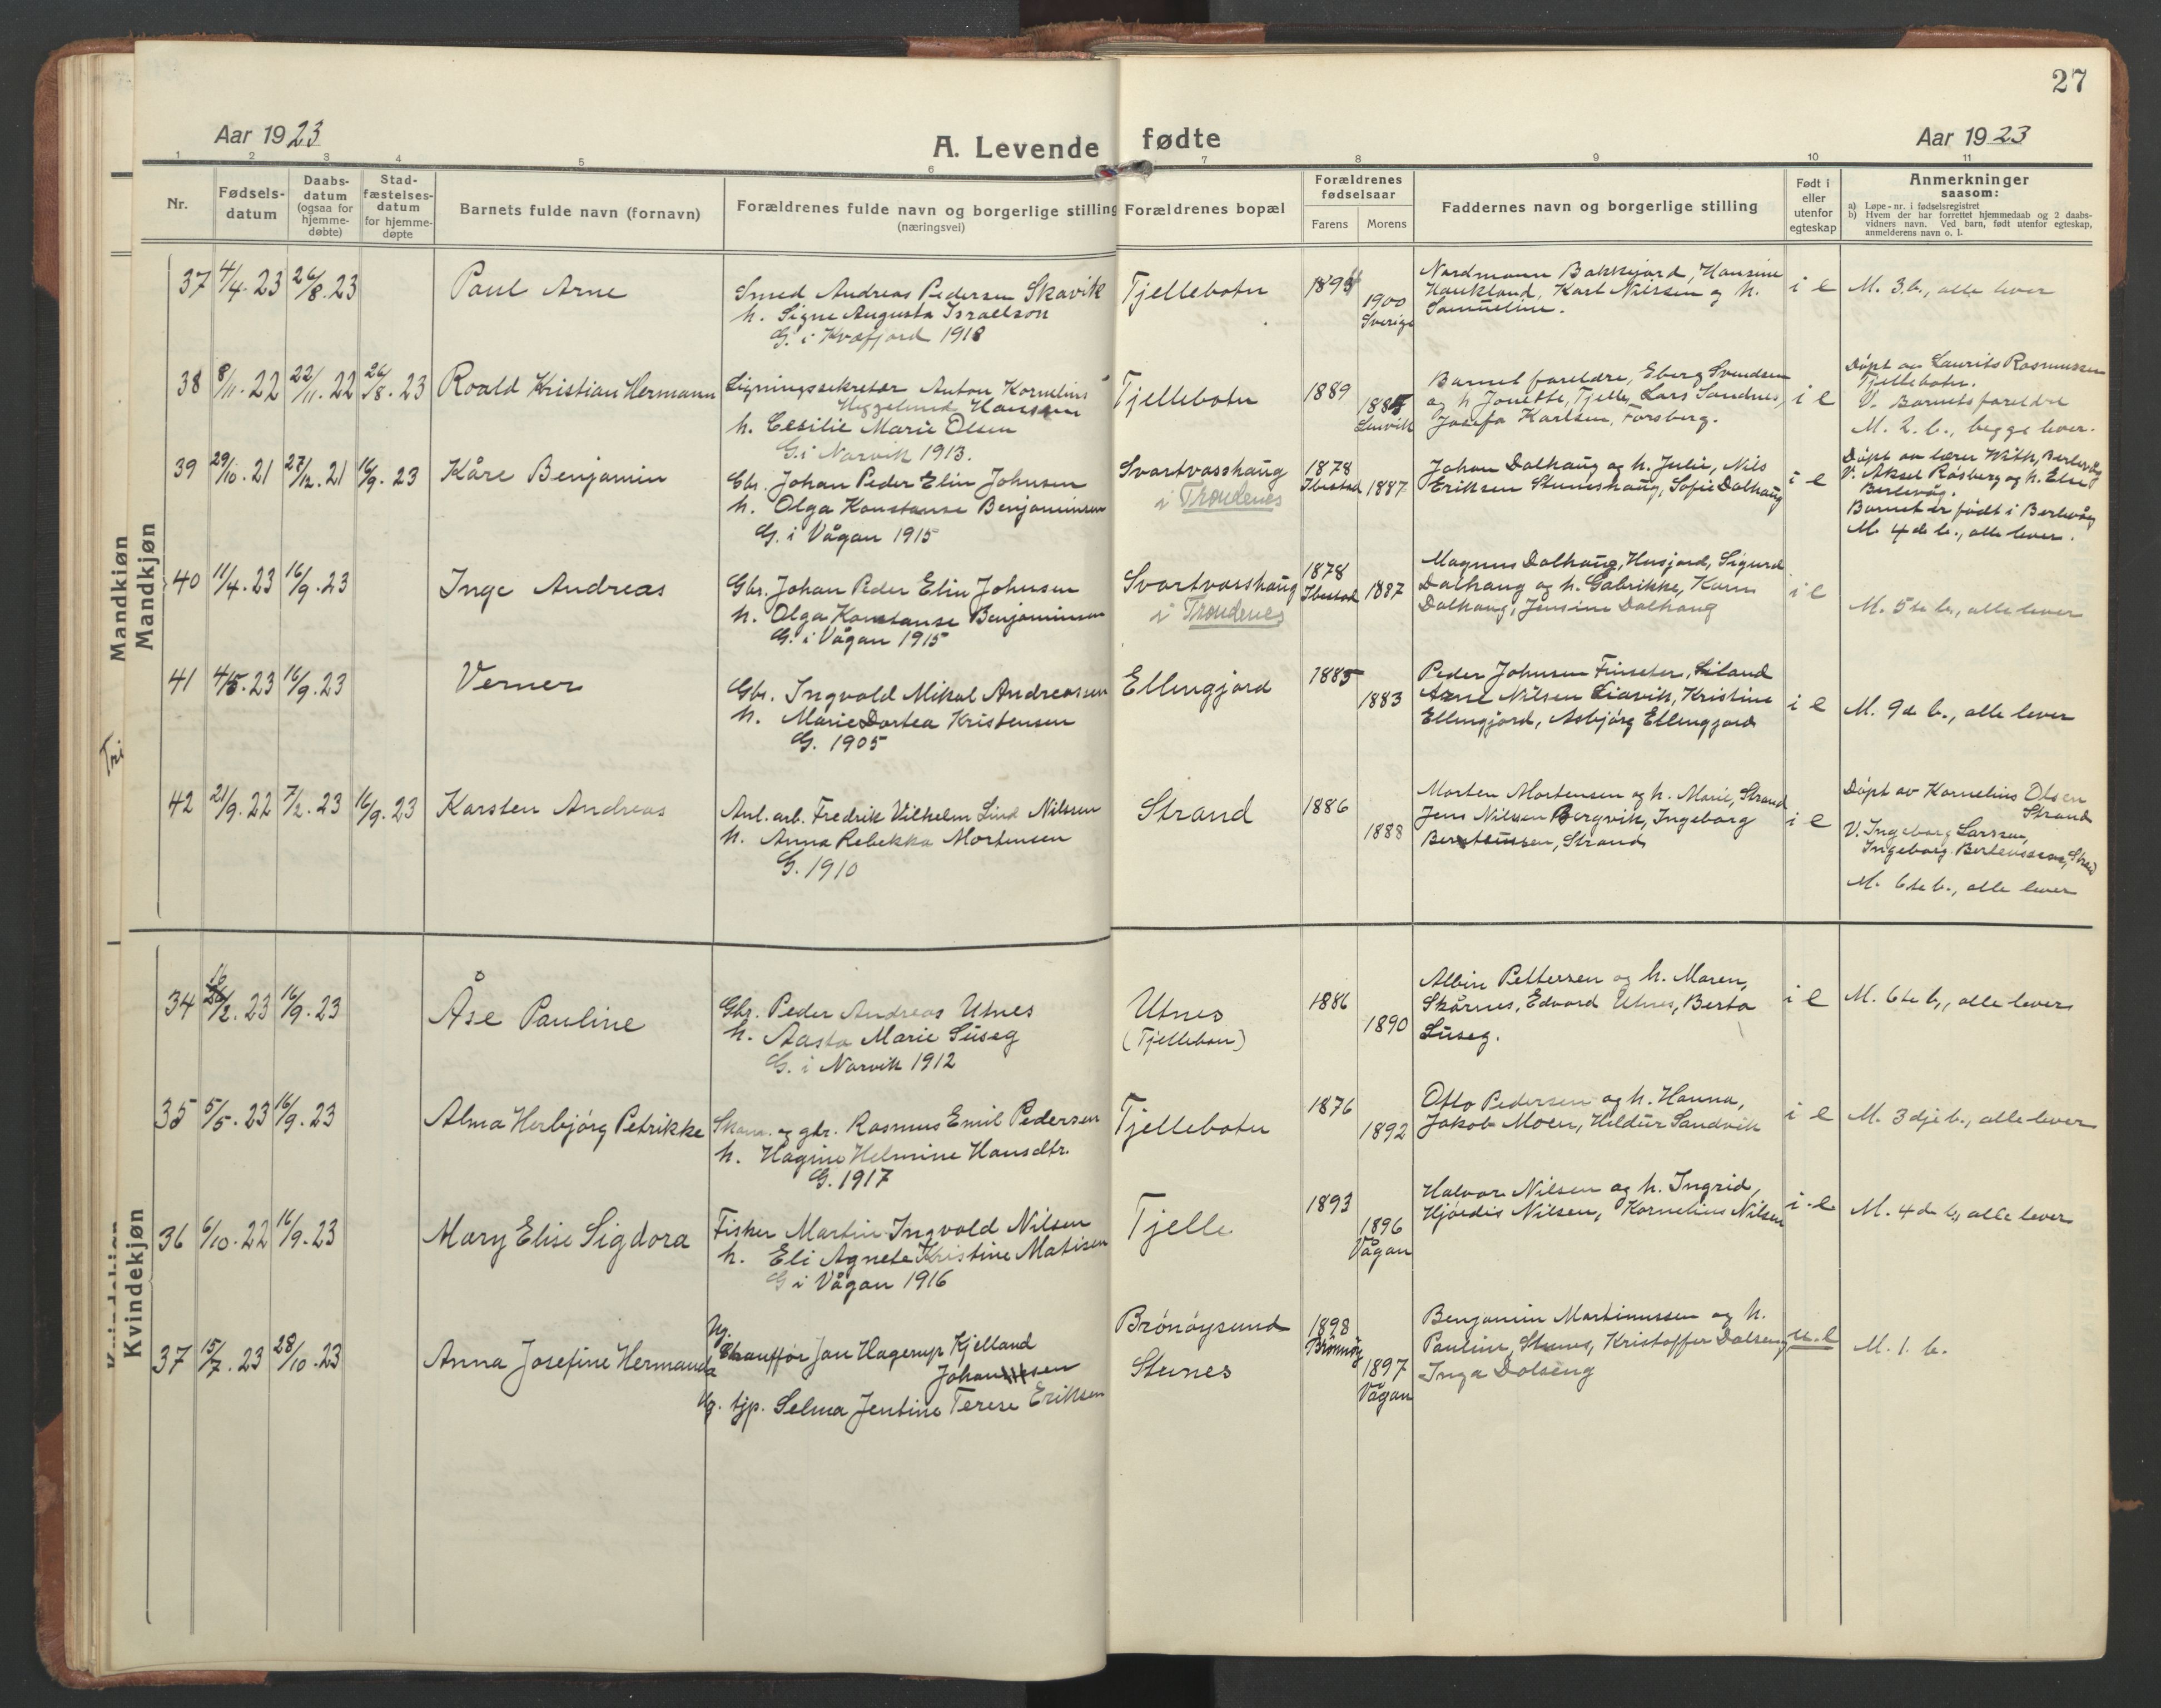 27
Aar 1923
A. Levende fødte
Aar 1923
1 2 3 4 5 6 7 8 9 10 11
Nr.
Fødsels-
datum
Daabs-
datum
(ogsaa for
hjemme-
døbte)
Stad-
fæstelses-
datum
for hjemme-
døpte
Barnets fulde navn (fornavn)
Forældrenes fulde navn og borgerlige stilling
(næringsvei)
Forældrenes bopæl
Forældrenes
fødselsaar
Farens Morens
Faddernes navn og borgerlige stilling
Født i
eller
utenfor
egteskap
Anmerkninger
saasom:
a) Løpe-nr. i fødselsregistret
b) Hvem der har forrettet hjemmedaab og 2 daabs-
vidners navn. Ved barn, født utenfor egteskap,
anmelderens navn o. l.
Mandkjøn
Mandkjøn
37 4/4.23 26/8.23 Paul Arne
Smed Andreas Pedersen Skavik
h. Signe Augusta Israelson
G. i Kvæfjord 1918
Tjellebotn
1900
Sverige
Nordmann Bakkejord, Hansine
Haukland, Karl Nilssen og h.
Samueline.
i e
M. 3. b., alle lever
38 8/11.22 22/11.22 26/8.23 Roald Kristian Hermann
Ligningssekretær Anton Kornelius
Heggelund Hanssen
h. Cesilie Marie Olsen
G. i Narvik 1913.
Tjellebotn
1889
1885
Lenvik
Barnets foreldre, Eberg Svendsen
og h. Jonette, Tjelle, Lars Sandnes,
Josefa Karlsen, Forsberg.
i e
Døpt av Laurits Rasmussen
Tjellebotn.
V. Barnets foreldre
M. 2. b., begge lever.
39 29/10.21 27/12.21 16/9.23 Kåre Benjamin
Gbr. Johan Peder Elin Johnsen
h. Olga Konstanse Benjaminsen
G. i Vågan 1915
Svartvasshaug
i Trondenes
1878
Ibestad
1887
Johan Dalhaug og h. Julie, Nils
Eriksen Steneshaug, Sofie Dalhaug
i e
Døpt av lærer With, Berlevåg
V. Aksel Råsberg og h. Else
Berlevåg.
Barnet er født i Berlevåg
M. 4de b., alle lever.
40 11/4.23 16/9.23 Inge Andreas
Gbr. Johan Peder Elin Johnsen
h. Olga Konstanse Benjaminsen
G. i Vågan 1915
Svartvasshaug
i Trondenes
1878
Ibestad
1887
Magnus Dalhaug, Husjord, Sigurd
Dalhaug og h. Gabrikke, Karen
Dalhaug, Jensine Dalhaug
i e
M. 5te b., alle lever
41 4/5.23 16/9.23 Verner
Gbr. Ingvald Mikal Andreassen
h. Marie Dortea Kristensen
G. 1905
Ellengjord
1885
1883
Peder Johnsen Finseter, Liland
Arne Nilsen Liavik, Kristine
Ellengjord, Asbjørg Ellengjord
i e
M. 9de b., alle lever
42 21/9.22 7/2.23 16/9.23 Karsten Andreas
Anl. arb. Fredrik Vilhelm Lind Nilssen
h. Anna Rebekka Mortensen
G. 1910
Strand
1886
1888
Morten Mortensen og h. Marie, Strand
Jens Nilsen Bergvik, Ingeborg
Berteussen, Strand
i e
Døpt av Kornelius Olsen
Strand
V. Ingeborg Larssen,
Ingeborg Berteussen, Strand
M. 6te b., alle lever
Kvindekjøn
34 16/2.23 16/9.23 Åse Pauline
Gbr. Peder Andreas Utnes
h. Aasta Marie Suseg
G. i Narvik 1912
Utnes
(Tjellebotn)
1886
1890
Albin Pettersen og h. Maren,
Skårnes, Edvard Utnes, Berta
Suseg.
i e
M. 6te b., alle lever
35 5/5.23 16/9.23 Alma Herbjørg Petrikke
Skom. og gbr. Rasmus Emil Pedersen
h. Hagine Helmine Hansdtr.
G. 1917
Tjellebotn
1876
1892
Otto Pedersen og h. Hanna,
Jakob Moen, Hildur Sandvik
i e
M. 3dje b., alle lever
36 6/10.22 16/9.23 Mary Elise Sigdora
Fisker Martin Ingvald Nilsen
h. Eli Agnete Kristine Matisen
G i Vågan 1916
Tjelle
1893
1896
Vågan
Halvar Nilsen og h. Ingrid,
Hjørdis Nilsen, Kornelius Nilsen
i e
M. 4de b., alle lever
37 15/7.23 28/10.23 Anna Josefine Hermanda
Ug.
Chauffør Jan Hagerup Kjelland
Johansen
Ug. tjp. Selma Jentine Terese Eriksen
Brønøysund
Stenes
1898
Brønnøy
1897
Vågan
Benjamin Martinussen og h.
Pauline, Stenes, Kristoffer Dalseng
Inga Dalseng
u. e
M. 1. b.